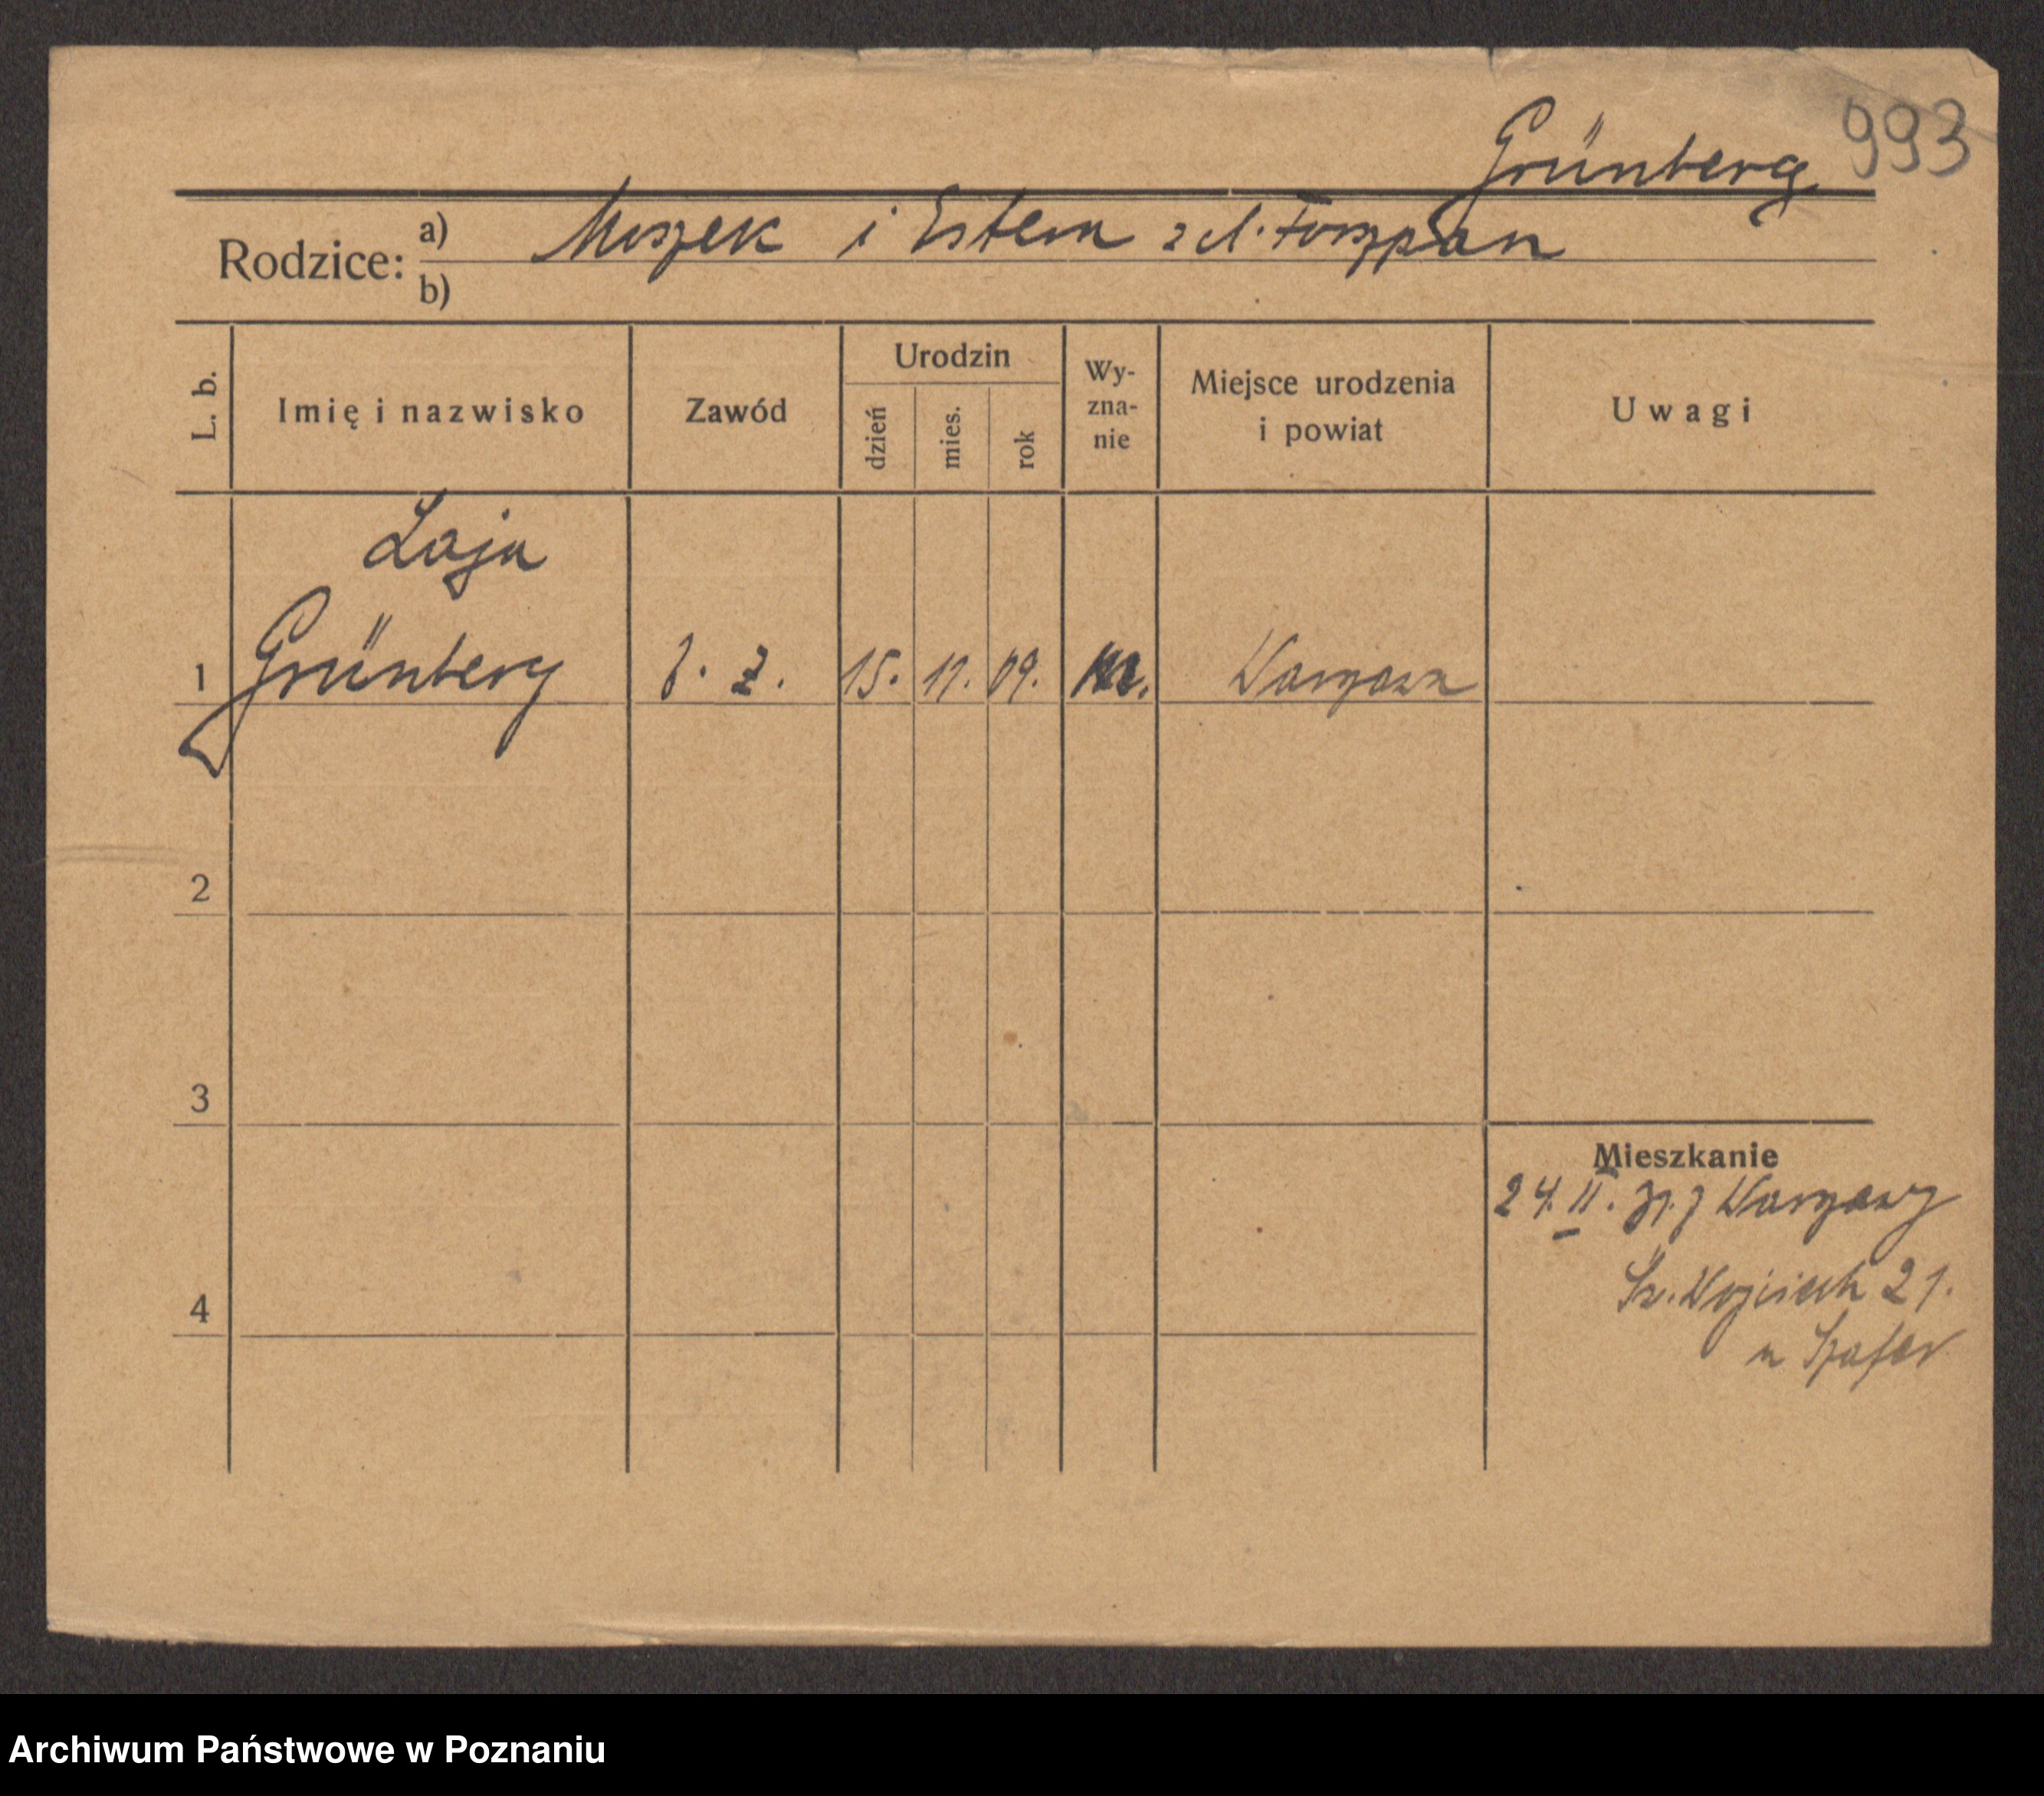 Grünberg 993
Rodzice: a) Moszek i Estera z d. Forszpan
b)
L. b. Imię i nazwisko Zawód Urodzin dzień mies. rok Wy-zna-nie Miejsce urodzenia i powiat Uwagi
Laja
1 Grünberg b. z. 15. 11. 09. Warszawa
2
3
4
Mieszkanie
24. II. 31. z Warszawy
Św. Wojciech 21.
u Szafer
Archiwum Państwowe w Poznaniu